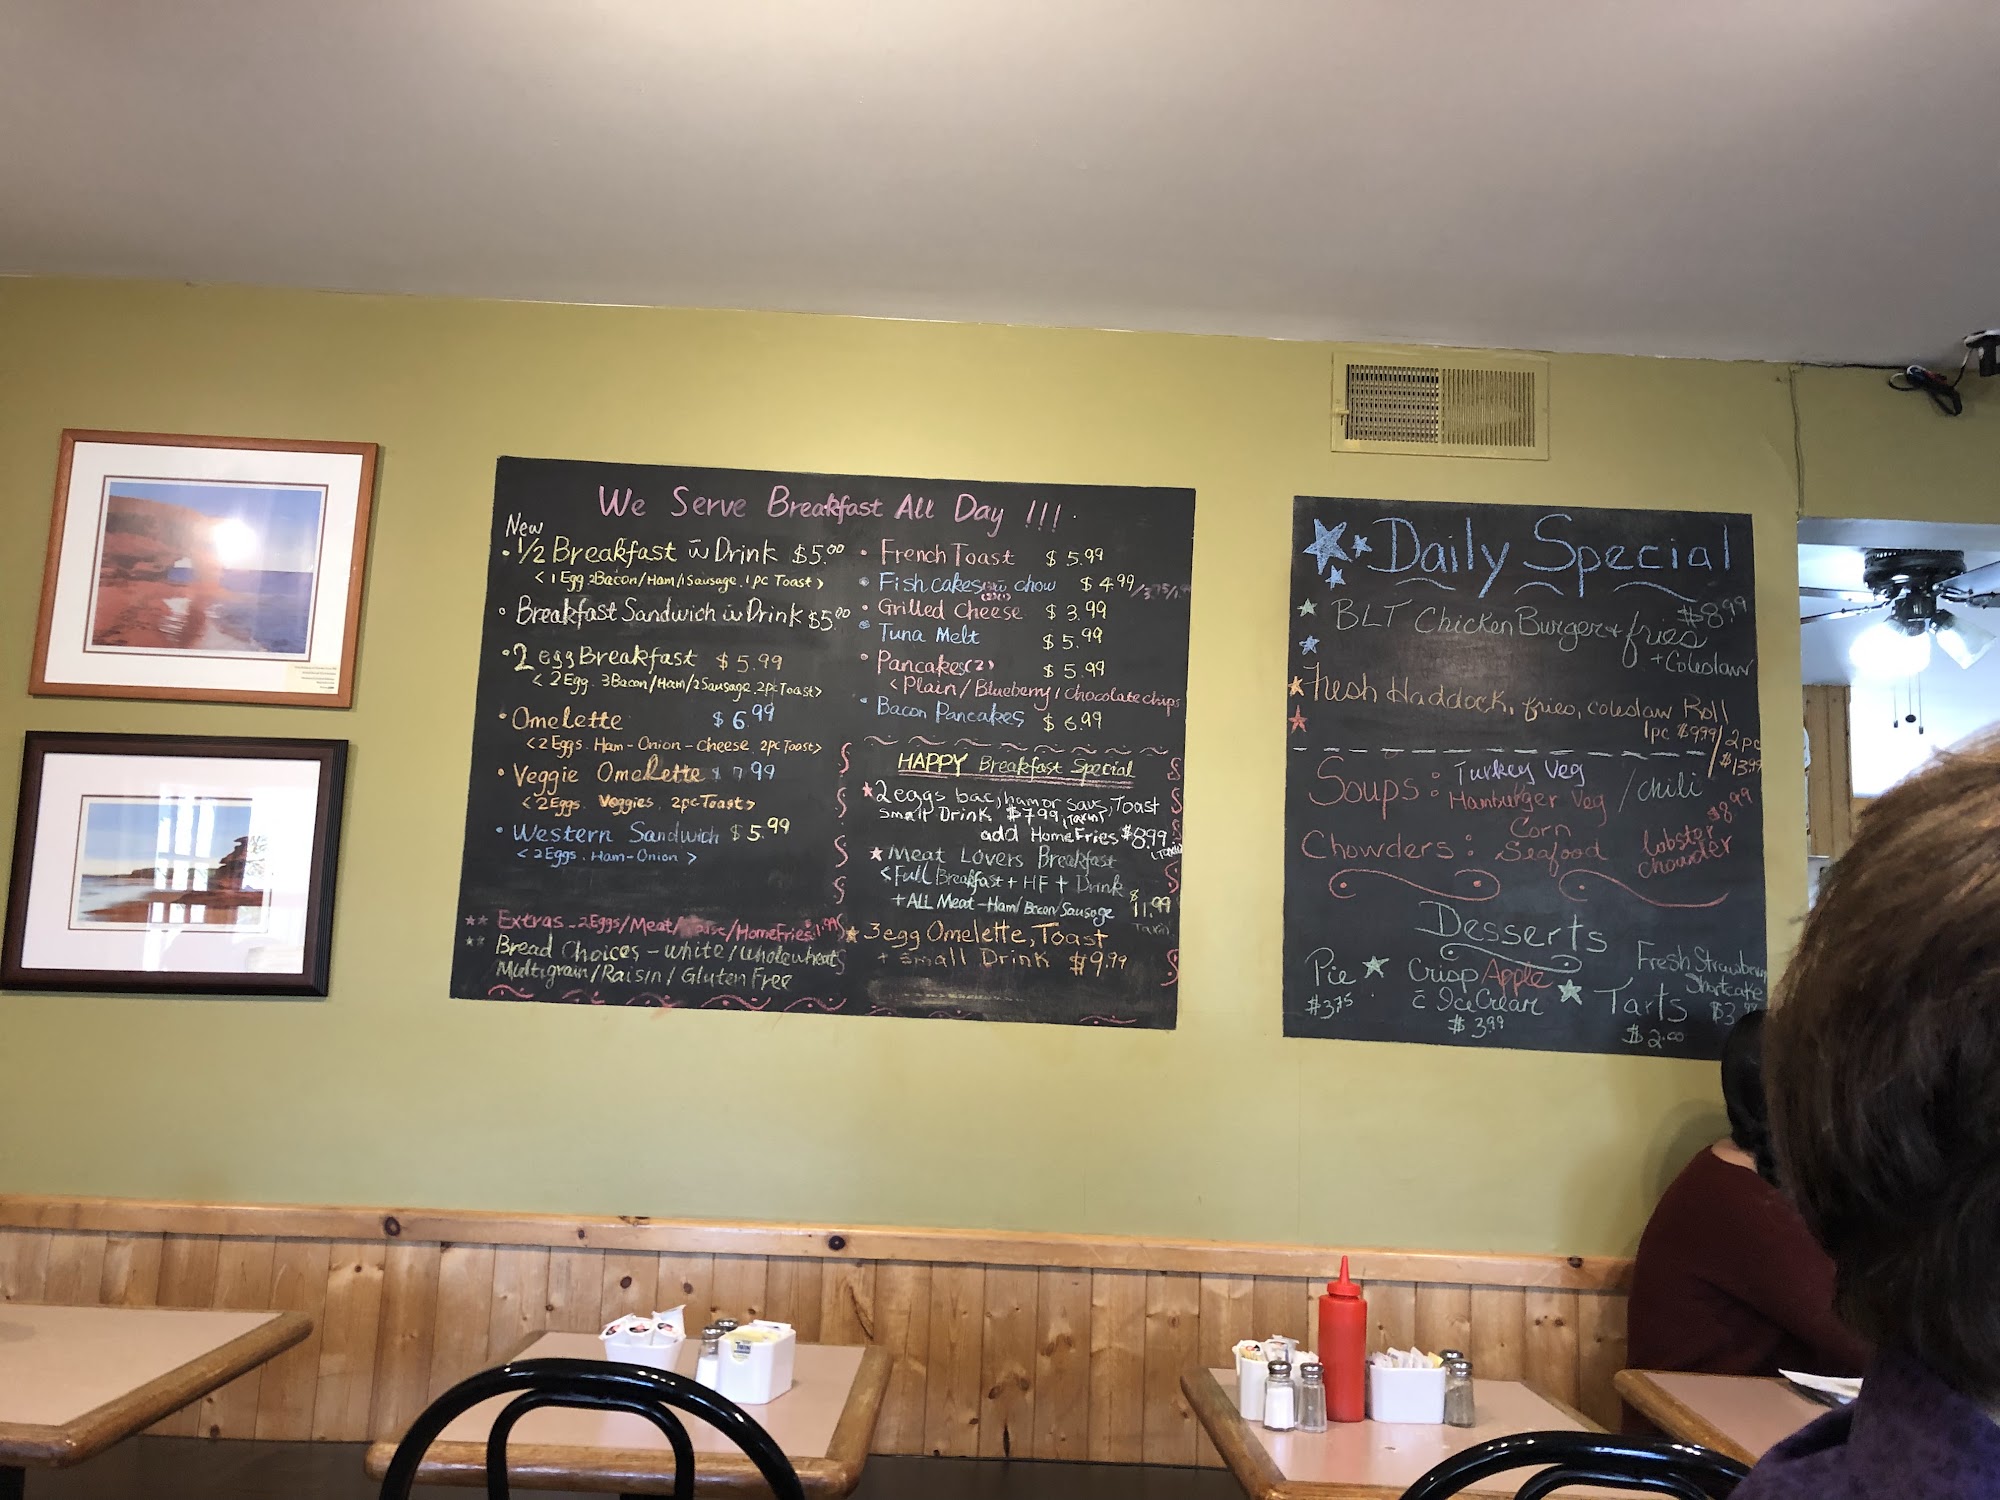 We Serve Breakfast All Day !!!
New
• 1/2 Breakfast w̄ Drink $5.00
< 1 Egg 2Bacon/Ham/1Sausage. 1pc Toast >
• Breakfast Sandwich w̄ Drink $5.00
• 2 egg Breakfast $5.99
< 2Egg. 3Bacon/Ham/2Sausage. 2pc Toast>
• Omelette $6.99
<2Eggs. Ham-Onion-Cheese. 2pc Toast>
• Veggie Omelette $7.99
<2Eggs. Veggies. 2pc Toast>
• Western Sandwich $5.99
<2Eggs. Ham-Onion >
** Extras - 2Eggs/Meat/ /HomeFries $1.99
** Bread Choices - white/wholewheat
Multigrain/Raisin/Gluten Free
• French Toast $5.99
• Fishcakes chow $4.99
• Grilled Cheese $3.99
• Tuna Melt $5.99
• Pancakes(2) $5.99
<Plain/Blueberry/Chocolate chips
• Bacon Pancakes $6.99
HAPPY Breakfast Special
* 2 eggs bac, ham or saus, Toast
small Drink $7.99
add HomeFries $8.99
* Meat Lovers Breakfast
<Full Breakfast + HF + Drink
+ ALL Meat - Ham/Bacon/Sausage $11.99
* 3 egg Omelette, Toast
+ small Drink $9.99
Daily Special
BLT Chicken Burger + fries $8.99
+ Coleslaw
Fresh Haddock, fries, coleslaw Roll
1pc $9.99/2pc $13.99
Soups: Turkey Veg / chili
Hamburger Veg $8.99
Chowders: Corn
Seafood
lobster chowder
Desserts
Pie $3.75
Crisp Apple
c̄ Ice Cream
$3.99
Tarts
$2.00
Fresh Strawberry
Shortcake